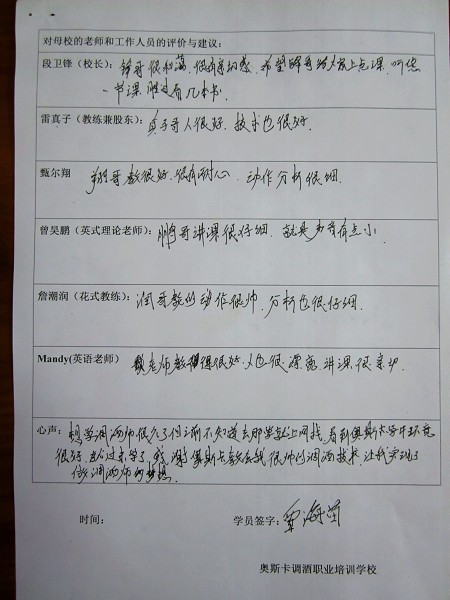 对母校的老师和工作人员的评价与建议:
段卫锋（校长）：锋哥很和蔼，很有亲和感，希望锋哥给大家上点课，听您
一节课胜过看几本书．
雷真子（教练兼股东）：真子哥人很好，技术也很好．
甄尔翔 翔哥教很好，很有耐心，动作分析很细．
曾昊鹏（英式理论老师）：鹏哥讲课很仔细，就是声音有点小．
詹潮润（花式教练）：润哥教的动作很帅，分析也很仔细．
Mandy(英语老师） 老师教得很好，人也很漂亮，讲课很亲切．
心声：想学调酒师很久了但之前不知道去那学就上网找，看到奥斯卡学牛环境
很好，就过来学了，我谢奥斯卡教会我很帅的调酒技术，让我实现了
做调酒师的梦想．
时间： 学员签字：
奥斯卡调酒职业培训学校